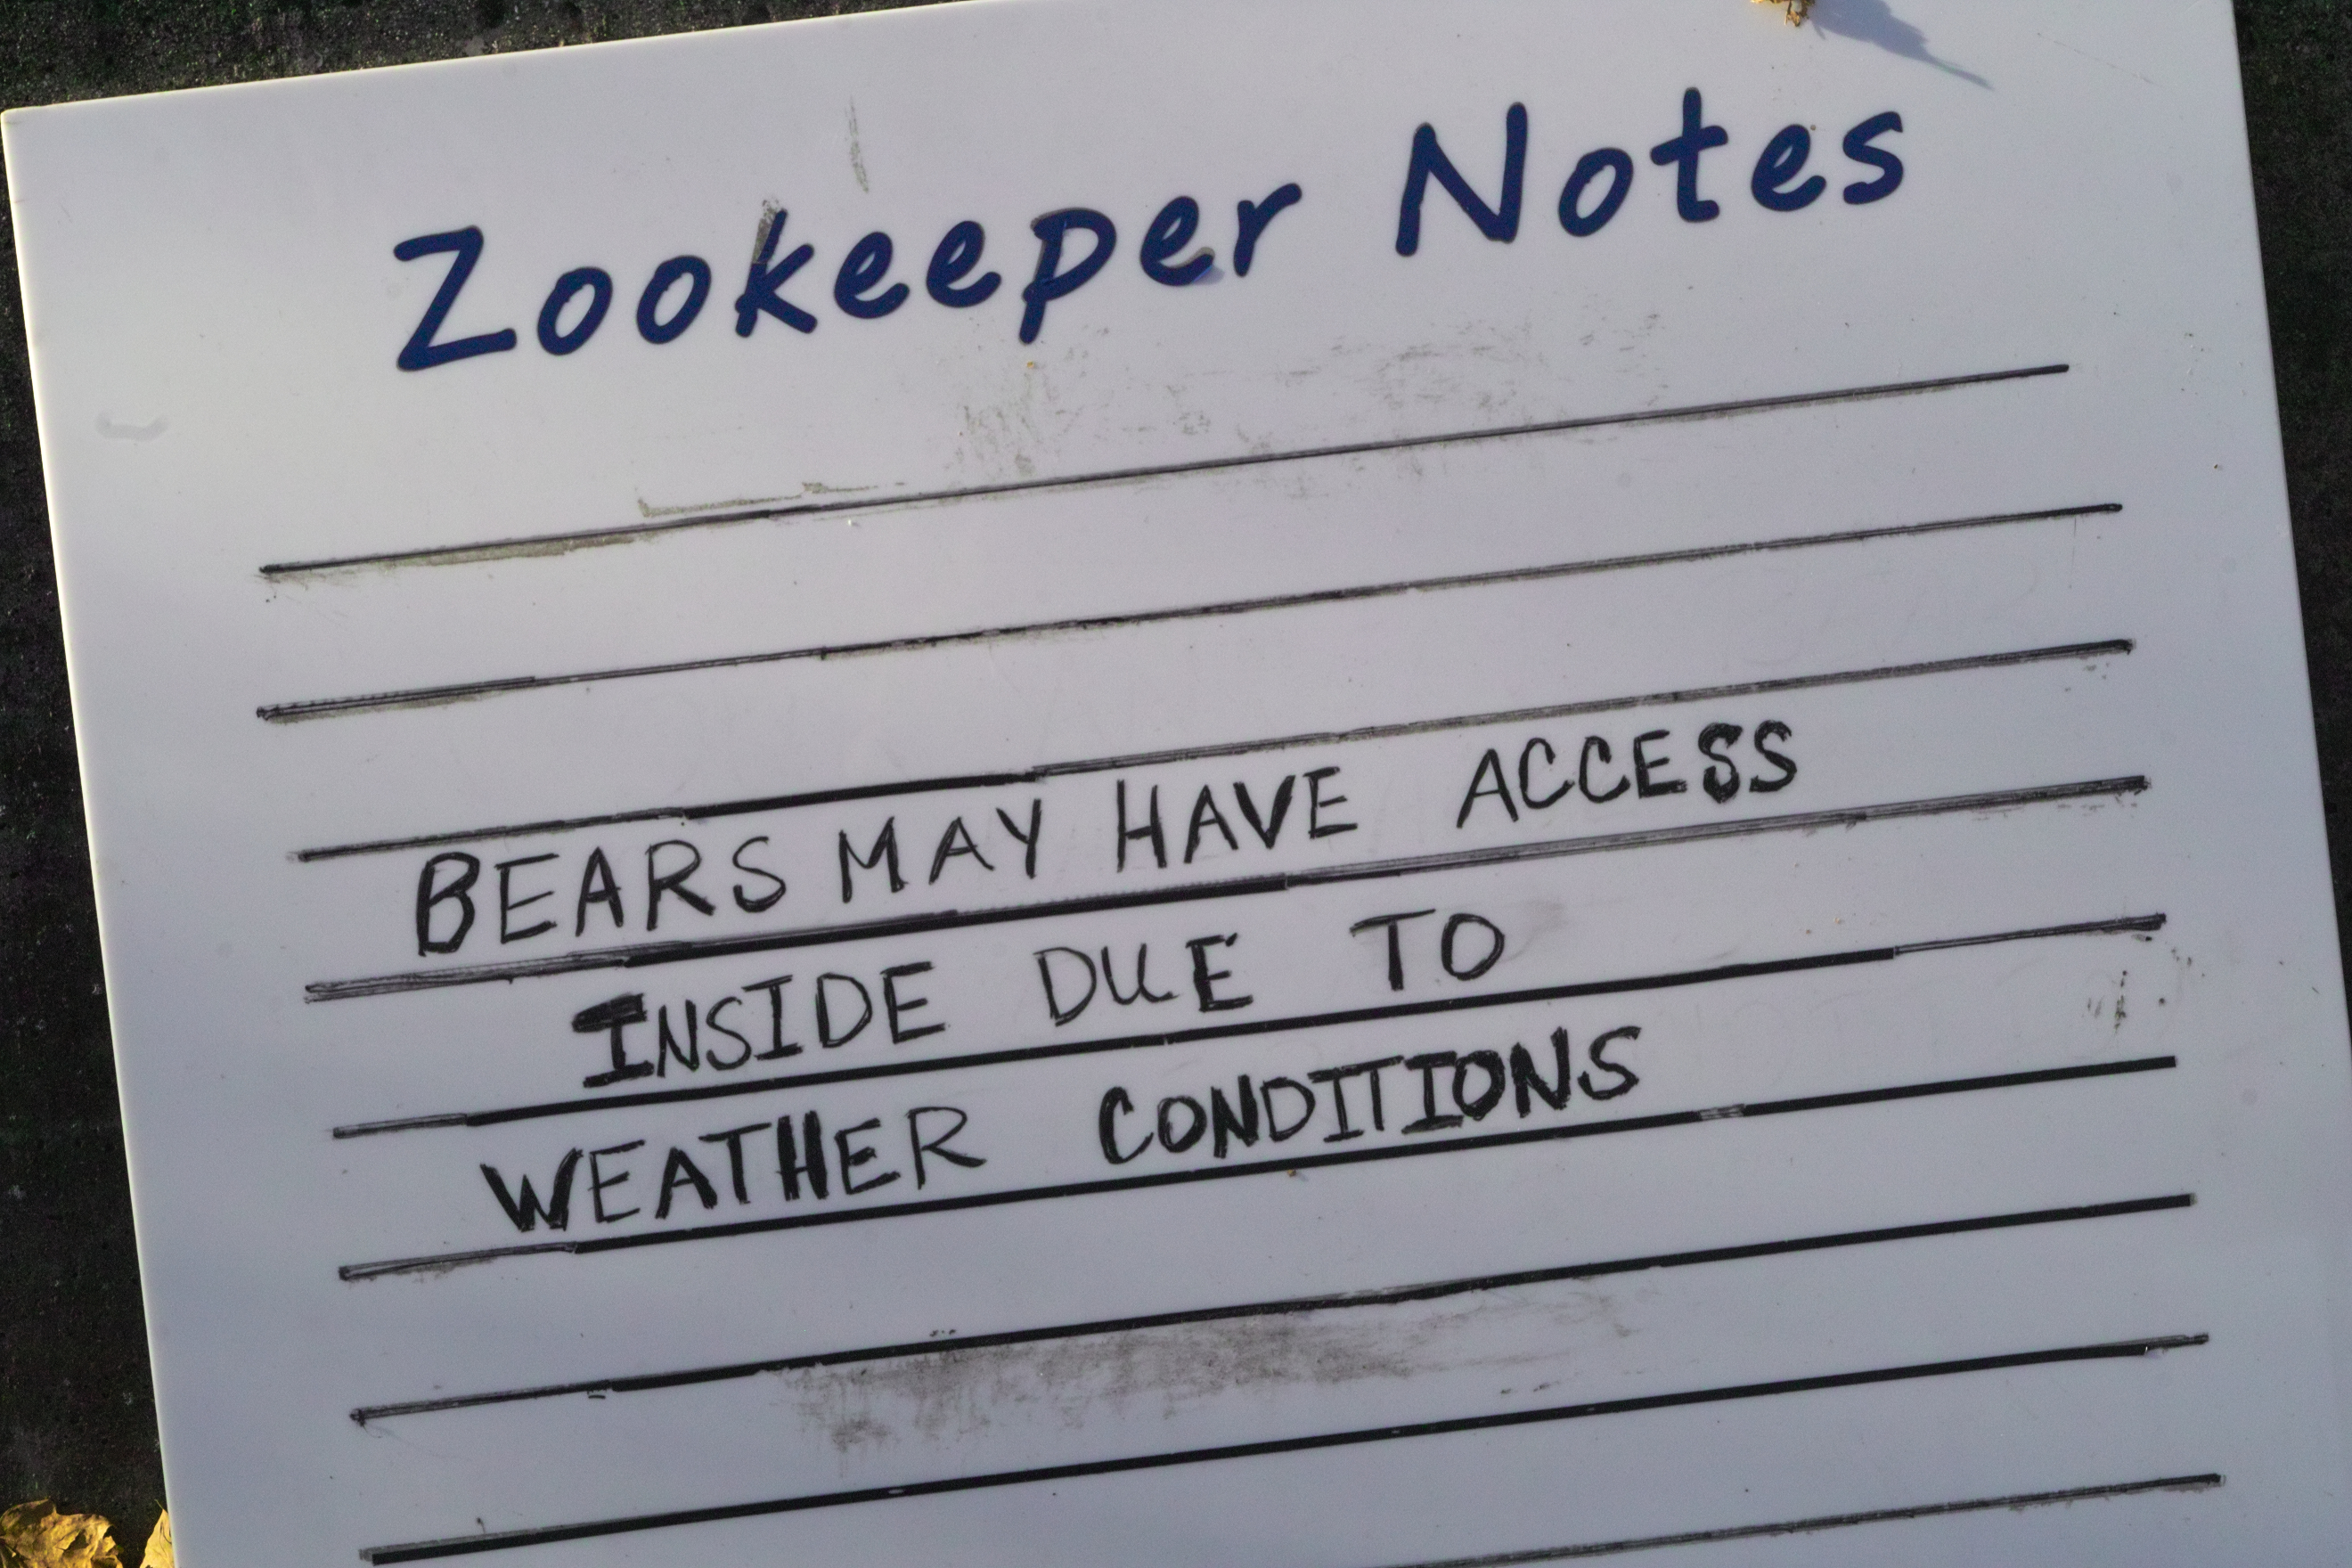 Zookeeper Notes
BEARS MAY HAVE ACCESS
INSIDE DUE TO
WEATHER CONDITIONS